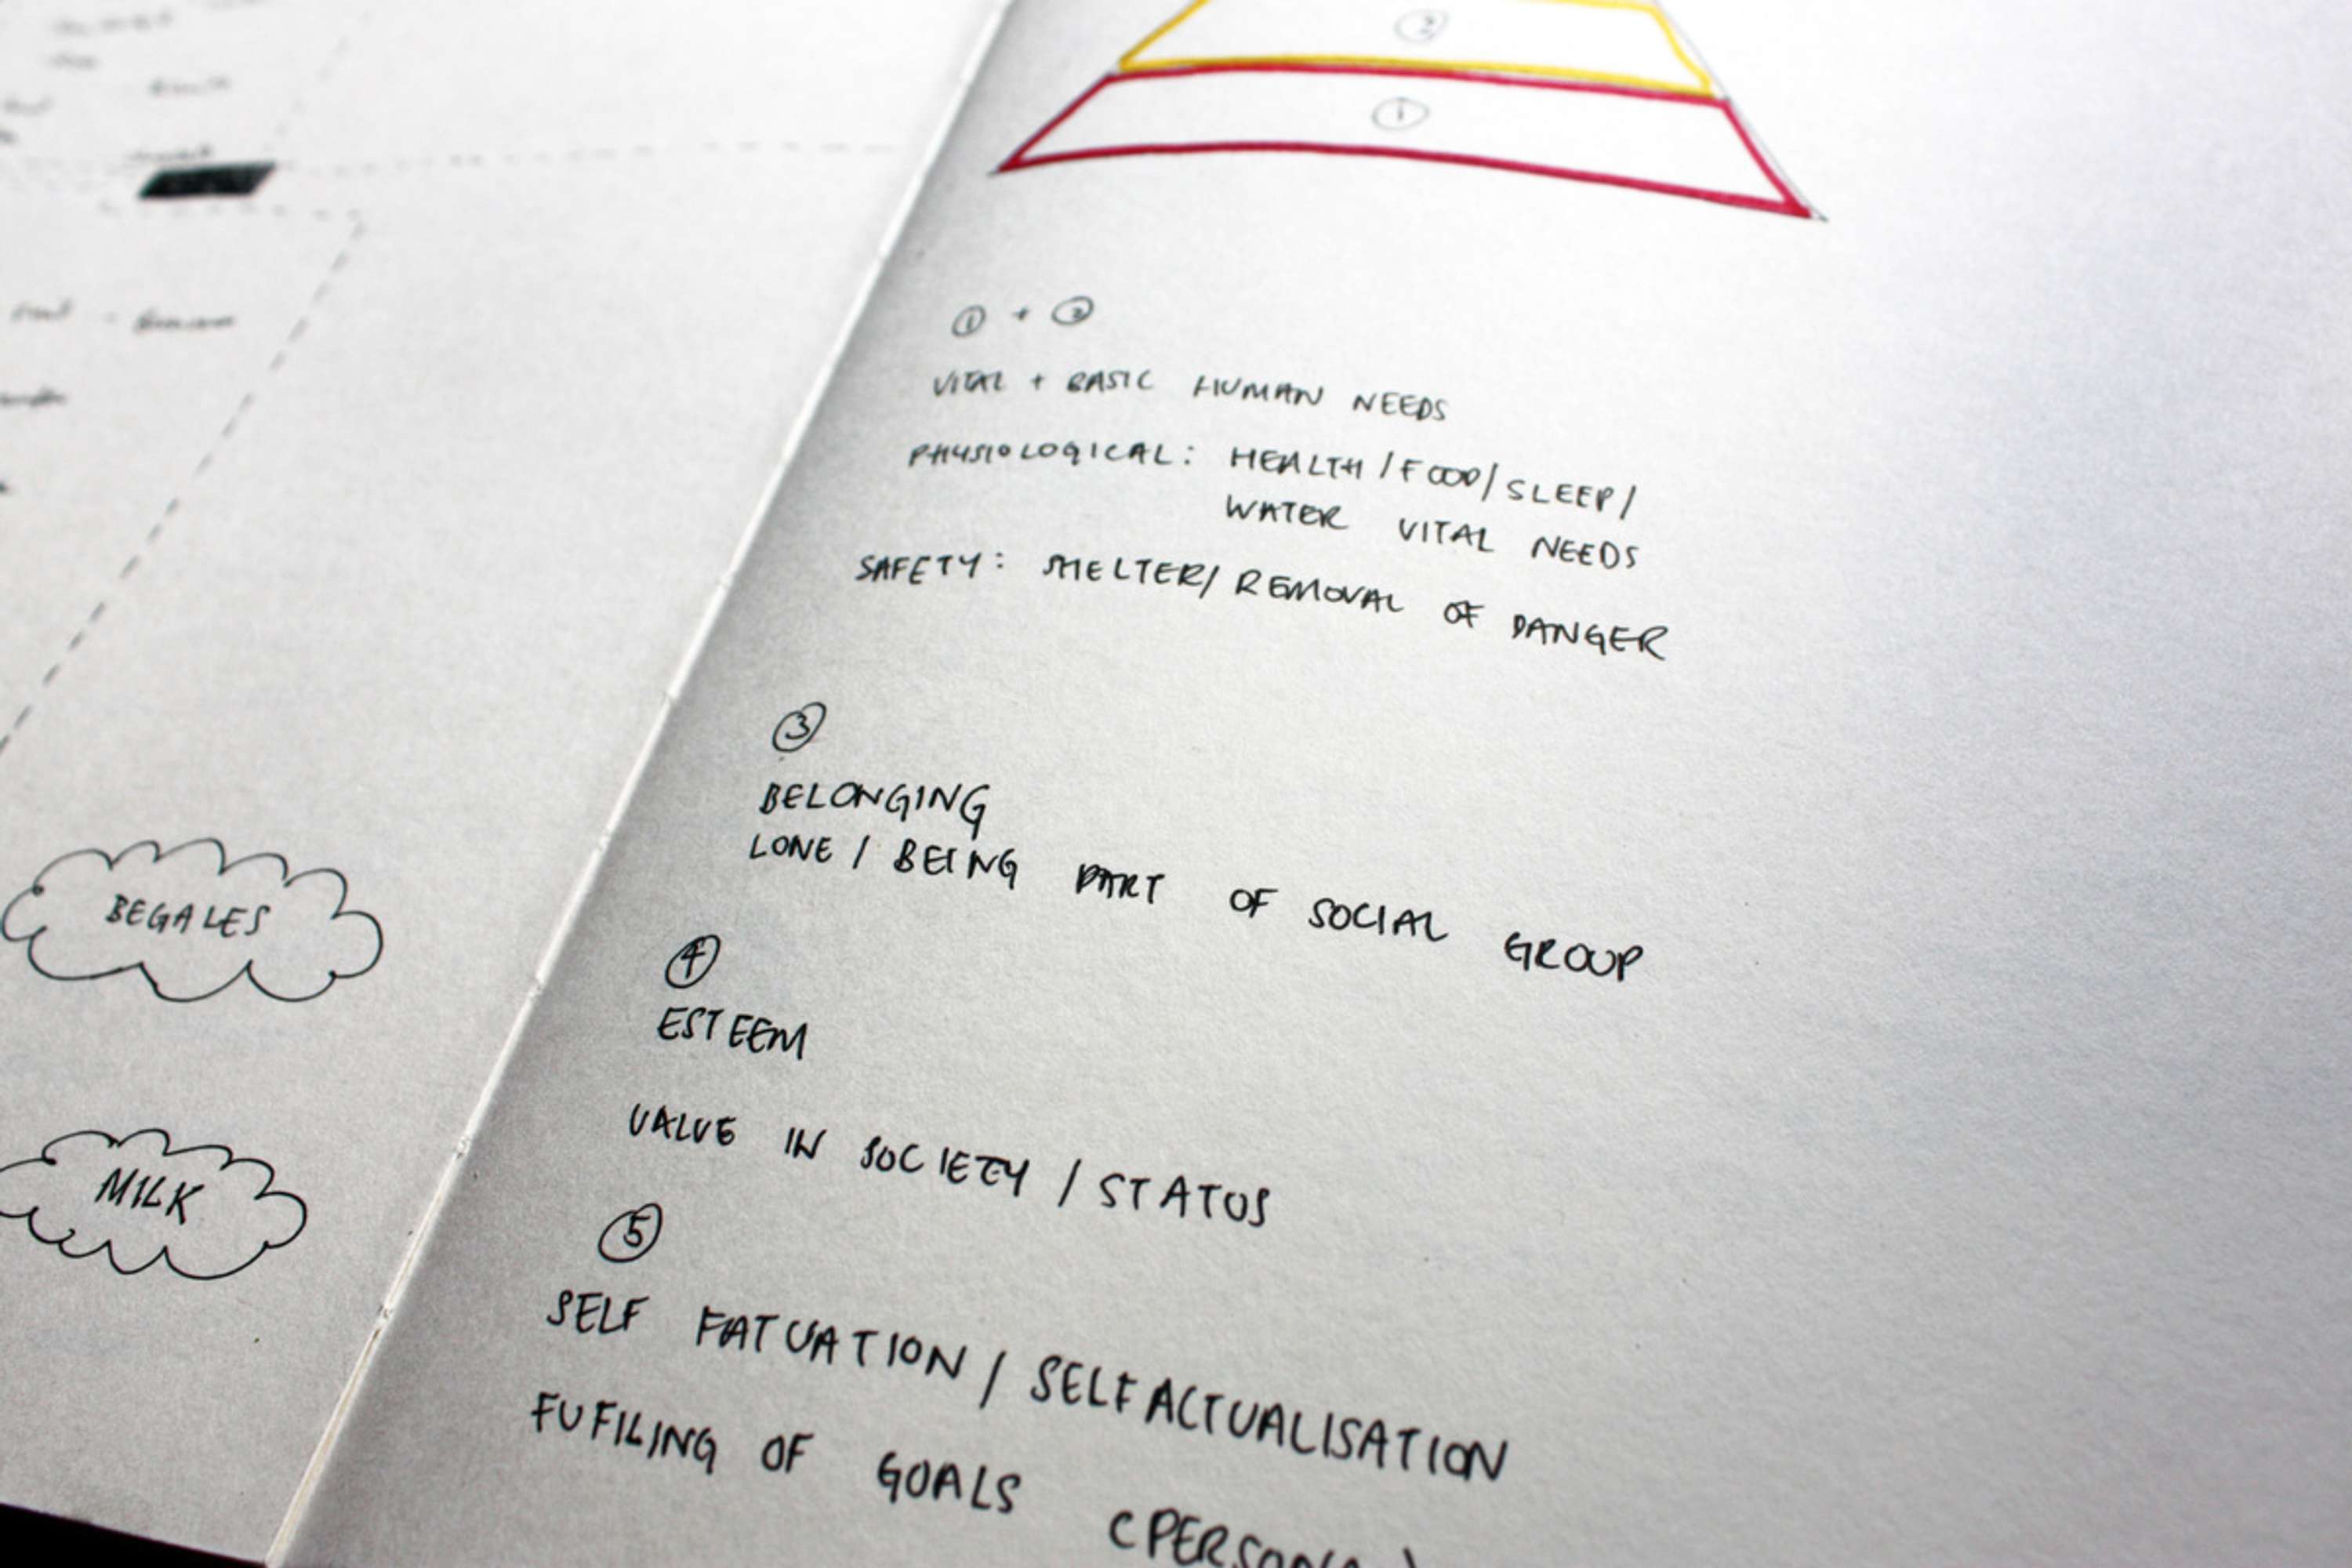 BEGALES
MILK
2
1
1 + 2
VITAL + BASIC HUMAN NEEDS
PHYSIOLOGICAL: HEALTH/FOOD/SLEEP/
WATER VITAL NEEDS
SAFETY: SHELTER/REMOVAL OF DANGER
3
BELONGING
LOVE / BEING PART OF SOCIAL GROUP
4
ESTEEM
VALUE IN SOCIETY / STATUS
5
SELF FATUATION / SELF ACTUALISATION
FUFILING OF GOALS (PERSONAL)